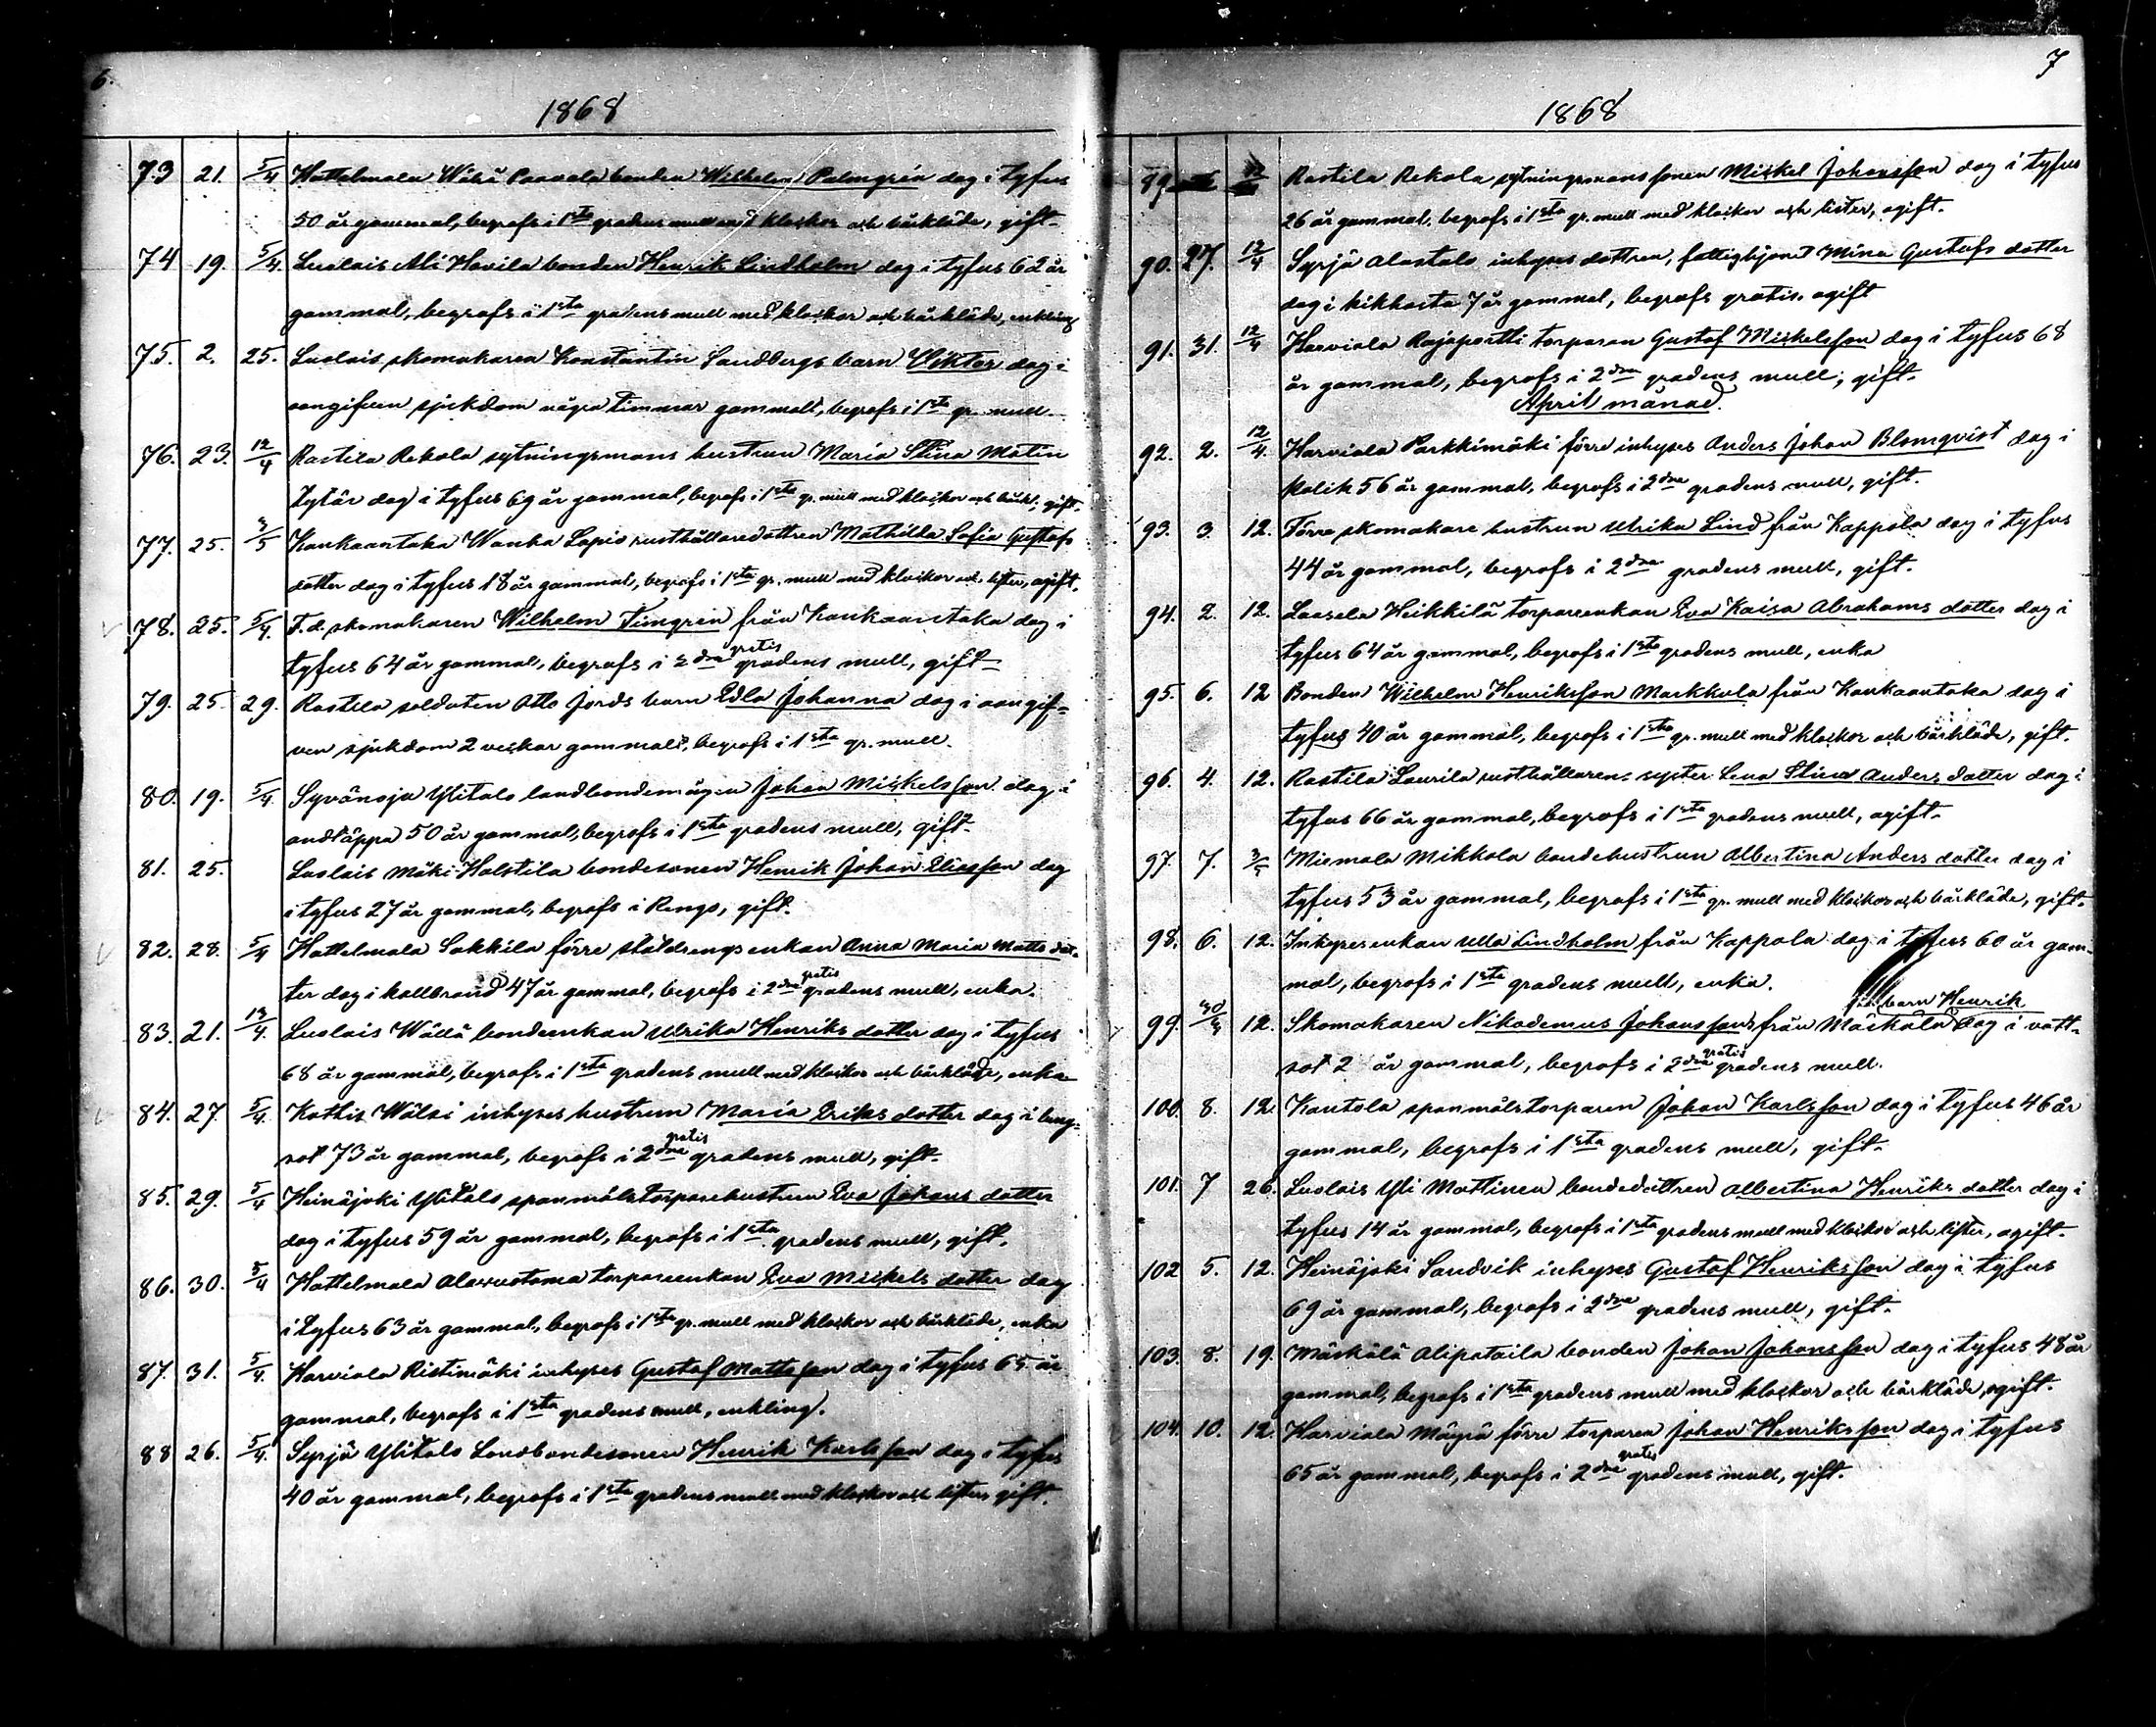 6.
1868
73 21. 5/4 Hattelmala Wähä Paavola bonden Wilhelm Palmgrén dog i tyfus
50 år gammal, begrofs i 1sta gradens mull med klockor och bårkläde, gift.
74 19. 5/4. Luolais Ali Havila bonden Henrik Lindholm dog i tyfus 62 år
gammal, begrofs i 1sta gradens mull med klockor och bårkläde, enkling
75. 2. 25. Luolais skomakaren Konstantin Sandbergs barn Viktor dog i
oangifven sjukdom några timmar gammalt, begrofs i 1sta gr. mull.
76. 23. 12/4 Rastila Rekola sytningsmans hustrun Maria Stina Matin
tytär dog i tyfus 69 år gammal, begrofs i 1sta gr. mull med klockor och bårkl., gift.
77. 25. 3/5 Kankaantaka Wanka Lapio rusthållaredottren Mathilda Sofia Gustafs
dotter dog i tyfus 18 år gammal, begrofs i 1sta gr. mull med klockor och lister, ogift.
78. 25. 5/4. F.d. skomakaren Wilhelm Timgren från Kankaantaka dog i
tyfus 64 år gammal, begrofs i 2dra gratis gradens mull, gift.
79. 25. 29. Rastila soldaten Otto Jords barn Edla Johanna dog i oangif-
ven sjukdom 2 veckor gammalt, begrofs i 1sta gr. mull.
80. 19. 5/4. Syvänoja Ylitalo landbondemågen Johan Mickelsson dog i
andtäppa 50 år gammal, begrofs i 1sta gradens mull, gift.
81. 25. Luolais Mäki-Holstila bondesonen Henrik Johan Eliasson dog
i tyfus 27 år gammal, begrofs i Rengo, gift.
82. 28. 5/4 Hattelmala Sakkila förre stalldrengs enkan Anna Maria Matts dot-
ter dog i kallbrand 47 år gammal, begrofs i 2dra gratis gradens mull, enka.
83. 21. 13/4. Luolais Wällä bondeenkan Ulrika Henriks dotter dog i tyfus
68 år gammal, begrofs i 1sta gradens mull med klockor och bårkläde, enka
84. 27. 5/4. Katis Wälsi inhyses hustrun Maria Eriks dotter dog i lung-
sot 73 år gammal, begrofs i 2dra gratis gradens mull, gift.
85. 29. 5/4 Heinäjoki Ylitalo spanmålstorparehustrun Eva Johans dotter
dog i tyfus 59 år gammal, begrofs i 1sta gradens mull, gift.
86. 30. 5/4 Hattelmala Alavuotama torpareenkan Eva Mickels dotter dog
i tyfus 63 år gammal, begrofs i 1sta gr. mull med klockor och bårkläde, enka
87. 31. 5/4. Harviala Ristimäki inhyses Gustaf Mattsson dog i tyfus 65 år
gammal, begrofs i 1sta gradens mull, enkling.
88 26. 5/4. Syrjä Ylitalo Landbondesonen Henrik Karlsson dog i tyfus
40 år gammal, begrofs i 1sta gradens mull med klockor och lister, gift.
7
1868
89 12 Rastila Rekola sytningsmans sonen Mickel Johansson dog i tyfus
26 år gammal, begrofs i 1sta gr. mull med klockor och lister, ogift.
90. 27. 12/4 Syrjä Alastalo inhyses dottren, fattighjonet Mina Gustafs dotter
dog i kikhosta 7 år gammal, begrofs gratis. ogift
91. 31. 12/4 Harviala Rajaportti torparen Gustaf Mickelsson dog i tyfus 68
år gammal, begrofs i 2dra gradens mull, gift.
April månad.
92. 2. 12/4. Harviala Parkkimäki förre inhyses Anders Johan Blomqvist dog i
kolik 56 år gammal, begrofs i 2dra gradens mull, gift.
93. 3 12. Förre skomakare hustrun Ulrika Lind från Kappola dog i tyfus
44 år gammal, begrofs i 2dra gradens mull, gift.
94. 2. 12. Loasela Heikkilä torpareenkan Eva Kaisa Abrahams dotter dog i
tyfus 64 år gammal, begrofs i 1sta gradens mull, enka
95. 6. 12 Bonden Wilhelm Henriksson Markkula från Kankaantaka dog i
tyfus 40 år gammal, begrofs i 1sta gr. mull med klockor och bårkläde, gift.
96. 4. 12. Rastila Laurila rusthållarens syster Lena Stina Anders dotter dog i
tyfus 66 år gammal, begrofs i 1sta gradens mull, ogift.
97. 7. 3/5 Miemala Mikkola bondehustrun Albertina Anders dotter dog i
tyfus 53 år gammal, begrofs i 1sta gr. mull med klockor och bårkläde, gift.
98. 6. 12. Inhyses enkan Ulla Lindholm från Kappola dog i tyfus 60 år gam-
mal, begrofs i 1sta gradens mull, enka.
barn Henrik
99. 30/3 12. Skomakaren Nikodemus Johanssons från Mäskälä dog i vatt-
sot 2 år gammal, begrofs i 2dra gratis gradens mull.
100. 8. 12. Kantola spanmålstorparen Johan Karlsson dog i tyfus 46 år
gammal, begrofs i 1sta gradens mull, gift.
101. 7 26. Luolais Yli Mattinen bondedottren Albertina Henriks dotter dog i
tyfus 14 år gammal, begrofs i 1sta gradens mull med klockor och lister, ogift.
102 5. 12. Heinäjoki Sandvik inhyses Gustaf Henriksson dog i tyfus
69 år gammal, begrofs i 2dra gradens mull, gift.
103. 8. 19. Mäskälä Alipataila bonden Johan Johansson dog i tyfus 48 år
gammal, begrofs i 1sta gradens mull med klockor och bårkläde, ogift.
104. 10. 12. Harviala Mäyrä förre torparen Johan Henriksson dog i tyfus
65 år gammal, begrofs i 2dra gratis gradens mull, gift.